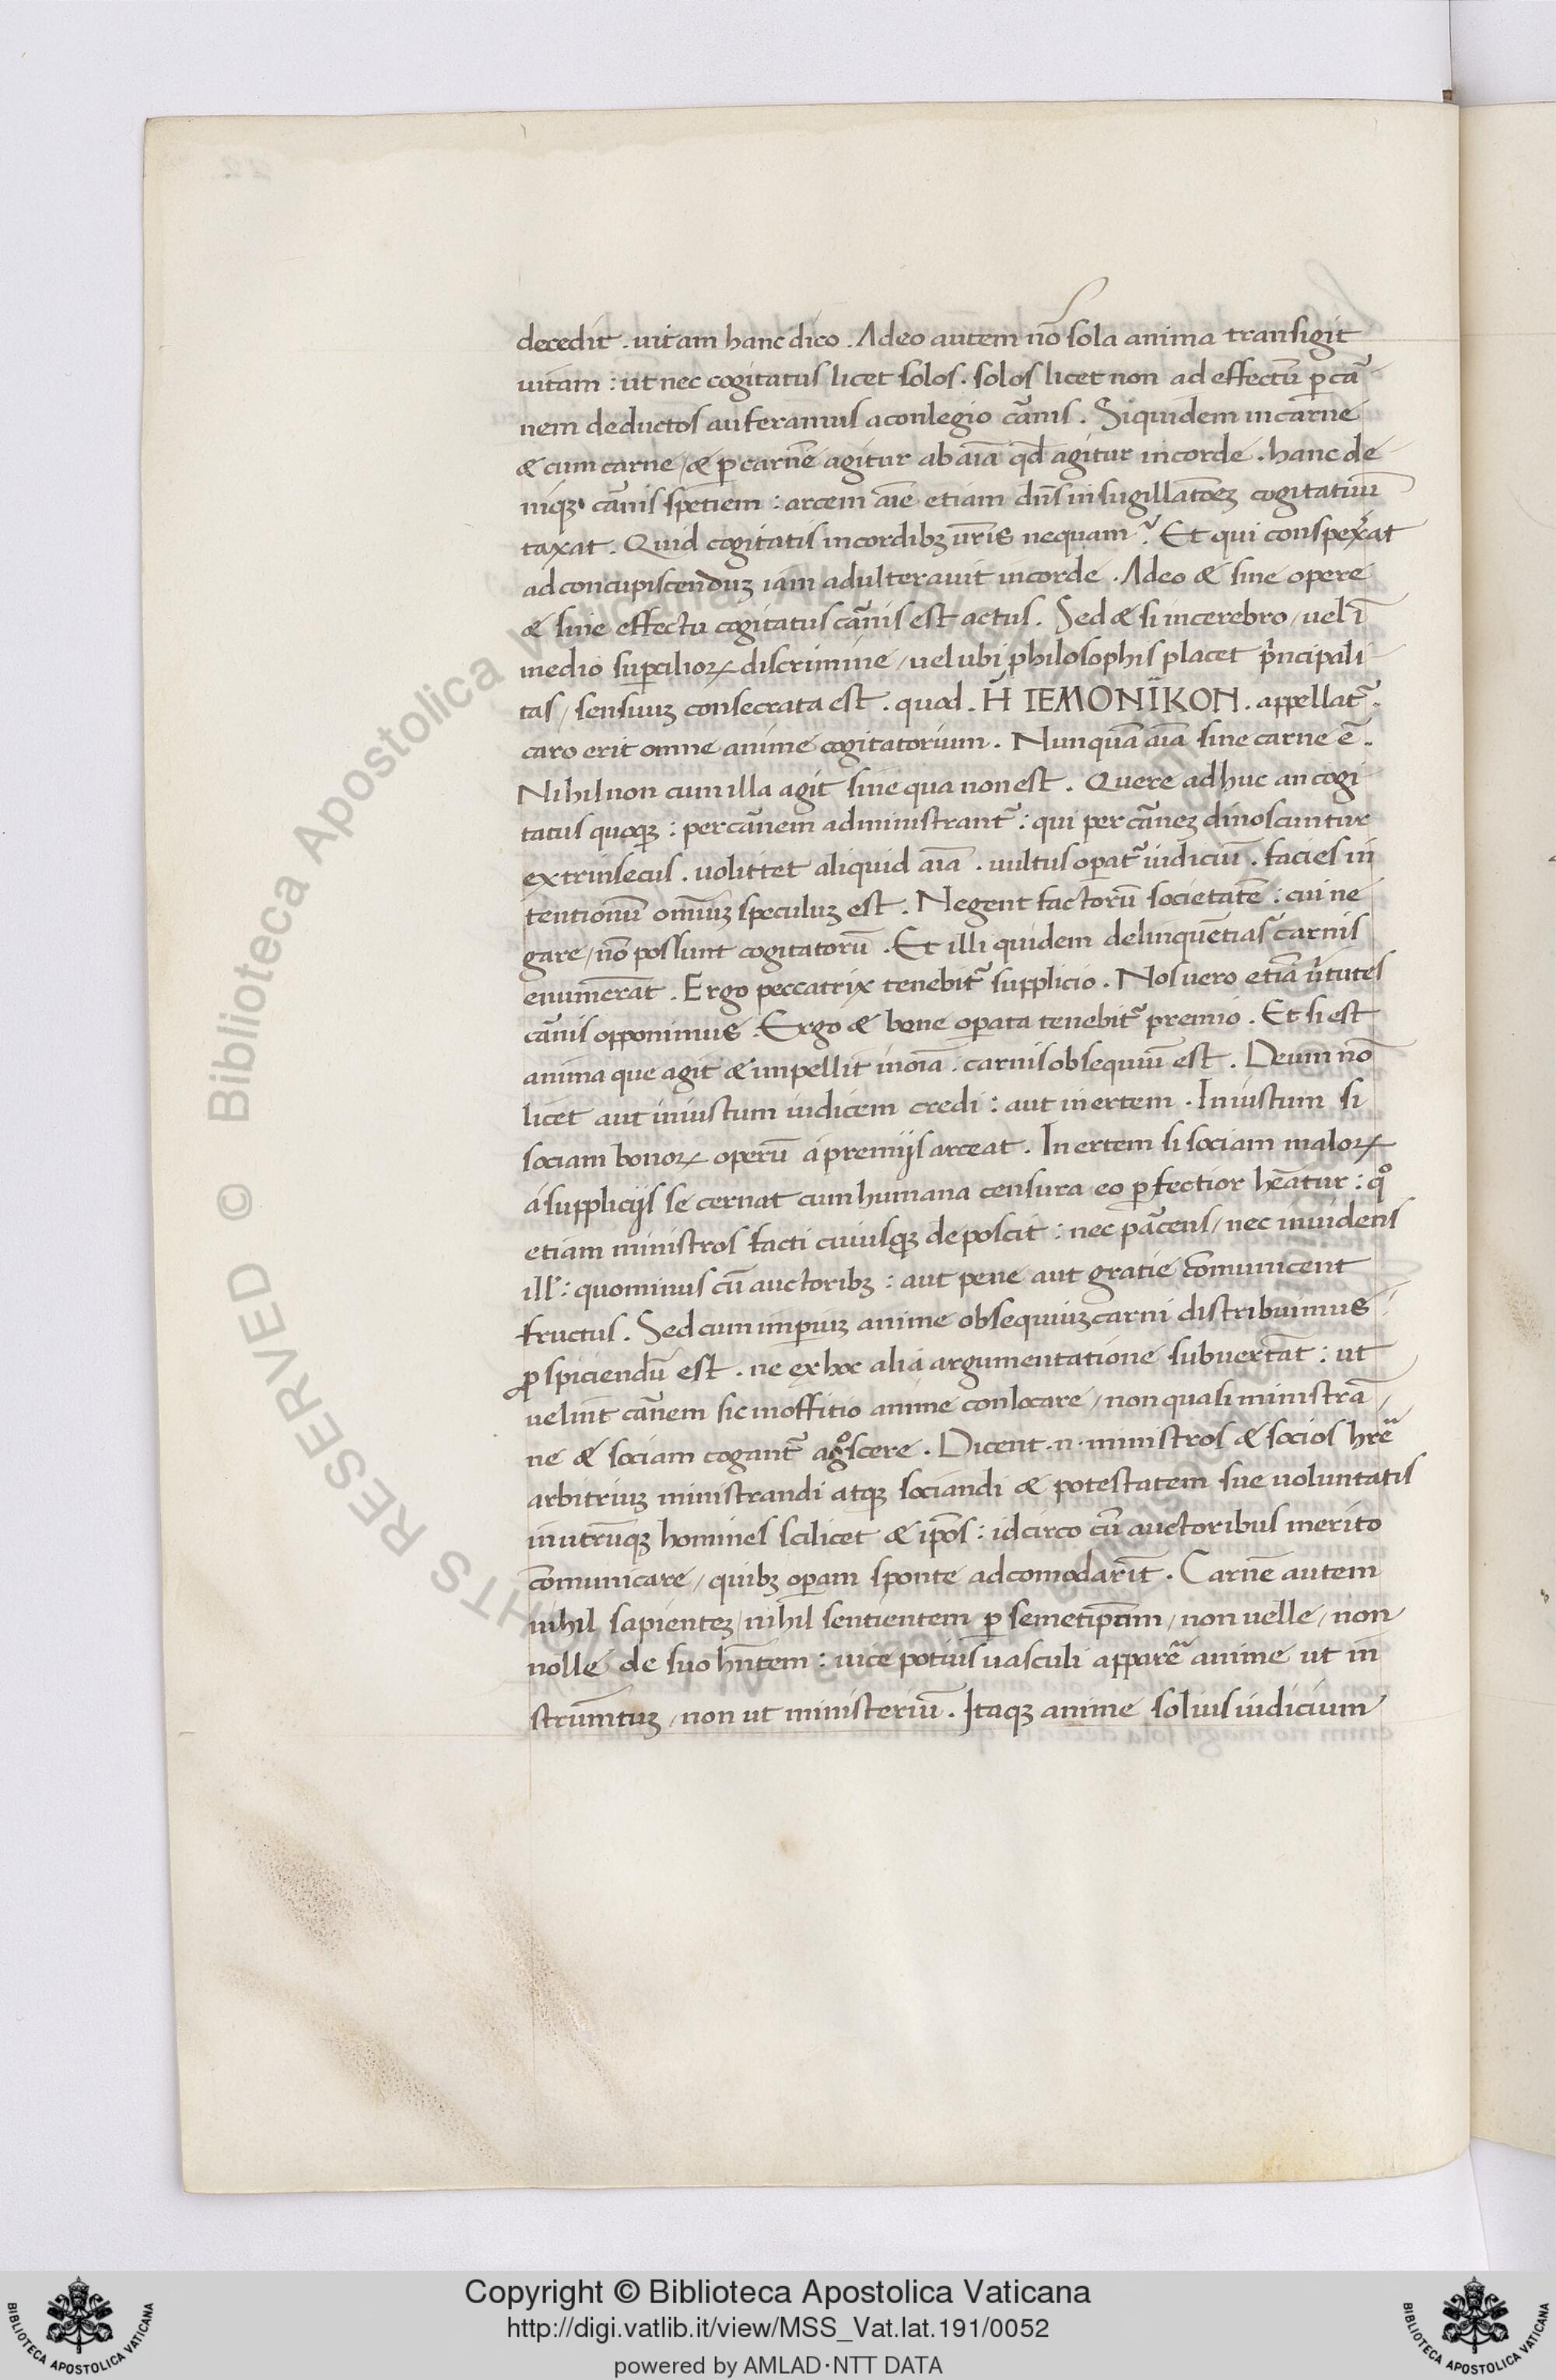 decedit . uitam hanc dico . Adeo autem nō sola anima transigit
uitam : ut nec cogitatus licet solos . solos licet non ad effectū ꝑ car̄
nem deductos auferamus a conlegio car̄nis . Siquidem in carne
& cum carne / & ꝑ carnē agitur ab aīa qd̄ agitur in corde . hanc de
niqꝫ car̄nis spētiem : arcem aīe etiam dn̄s in sugillatōeꝫ cogitatuū
taxat . Quid cogitatis in cordibꝫ ur̄is nequam ? Et qui conspexat̄
ad concupiscenduꝫ iam adulterauit in corde . Adeo & sine opere
& sine effectu cogitatus car̄nis est actus . Sed & si in cerebro / uel ī
medio suꝑcilioꝝ discrimine / uel ubi philosophis placet pr̄ncipali
tas / sensuuꝫ consecrata est . quod . H̄ IEMONÏKON . appellat̄ .
caro erit omne anime cogitatorium . Nunquā aīa sine carne ē .
Nihil non cum illa agit sine qua non est . Quere adhuc an cogi
tatus quoqꝫ : per car̄nem administrant̄ : qui per car̄neꝫ dinoscuntur
extrinsecus . uolittet aliquid aīa . uultus oꝑat̄ iudiciū . facies in
tentionū omniuꝫ speculuꝫ est . Negent factorū societatē : cui ne
gare / nō possunt cogitatorū . Et illi quidem delinquentias carnis
enumerāt . Ergo peccatrix tenebit̄ supplicio . Nos uero etiā ūtutes
car̄nis opponimus . Ergo & bene oꝑata tenebit̄ premio . Et si est
anima que agit & impellit in oīa : carnis obsequiū est . Deum nō
licet aut iniustum iudicem credi : aut inertem . Iniustum si
sociam bonoꝝ operū a premijs arceat . Inertem si sociam maloꝝ
a supplicijs secernat cum humana censura eo ꝑfectior hēatur : qͦ
etiam ministros facti cuiusqꝫ deposcit : nec par̄cens / nec inuidens
ill' : quominus cū auctoribꝫ : aut pene aut gratie com̄unicent
fructus . Sed cum imꝑiuꝫ anime obsequiuꝫ carni distribuimus :
ꝓspiciendū est . ne ex hoc alia argumentatione subuertāt : ut
uelint car̄nem sic in offitio anime conlocare / non quasi ministrā /
ne & sociam cogant̄ agͦscere . Dicent .n. ministros & socios hr̄e
arbitriuꝫ ministrandi atqꝫ sociandi & potestatem sue uoluntatis
in utrūqꝫ homines scilicet & ip̄os : idcirco cū auctoribus merito
com̄unicare / quibꝫ oꝑam sponte adcomodarīt . Carnē autem
nihil sapienteꝫ / nihil sentientem ꝑ semetip̄am / non uelle / non
nolle de suo hn̄tem : uice potius uasculi apparēa anime ut in
strum̄tuꝫ / non ut ministeriū . Itaqꝫ anime solius iudicium
Copyright © Biblioteca Apostolica Vaticana
http://digi.vatlib.it/view/MSS_Vat.lat.191/0052
powered by AMLAD·NTT DATA